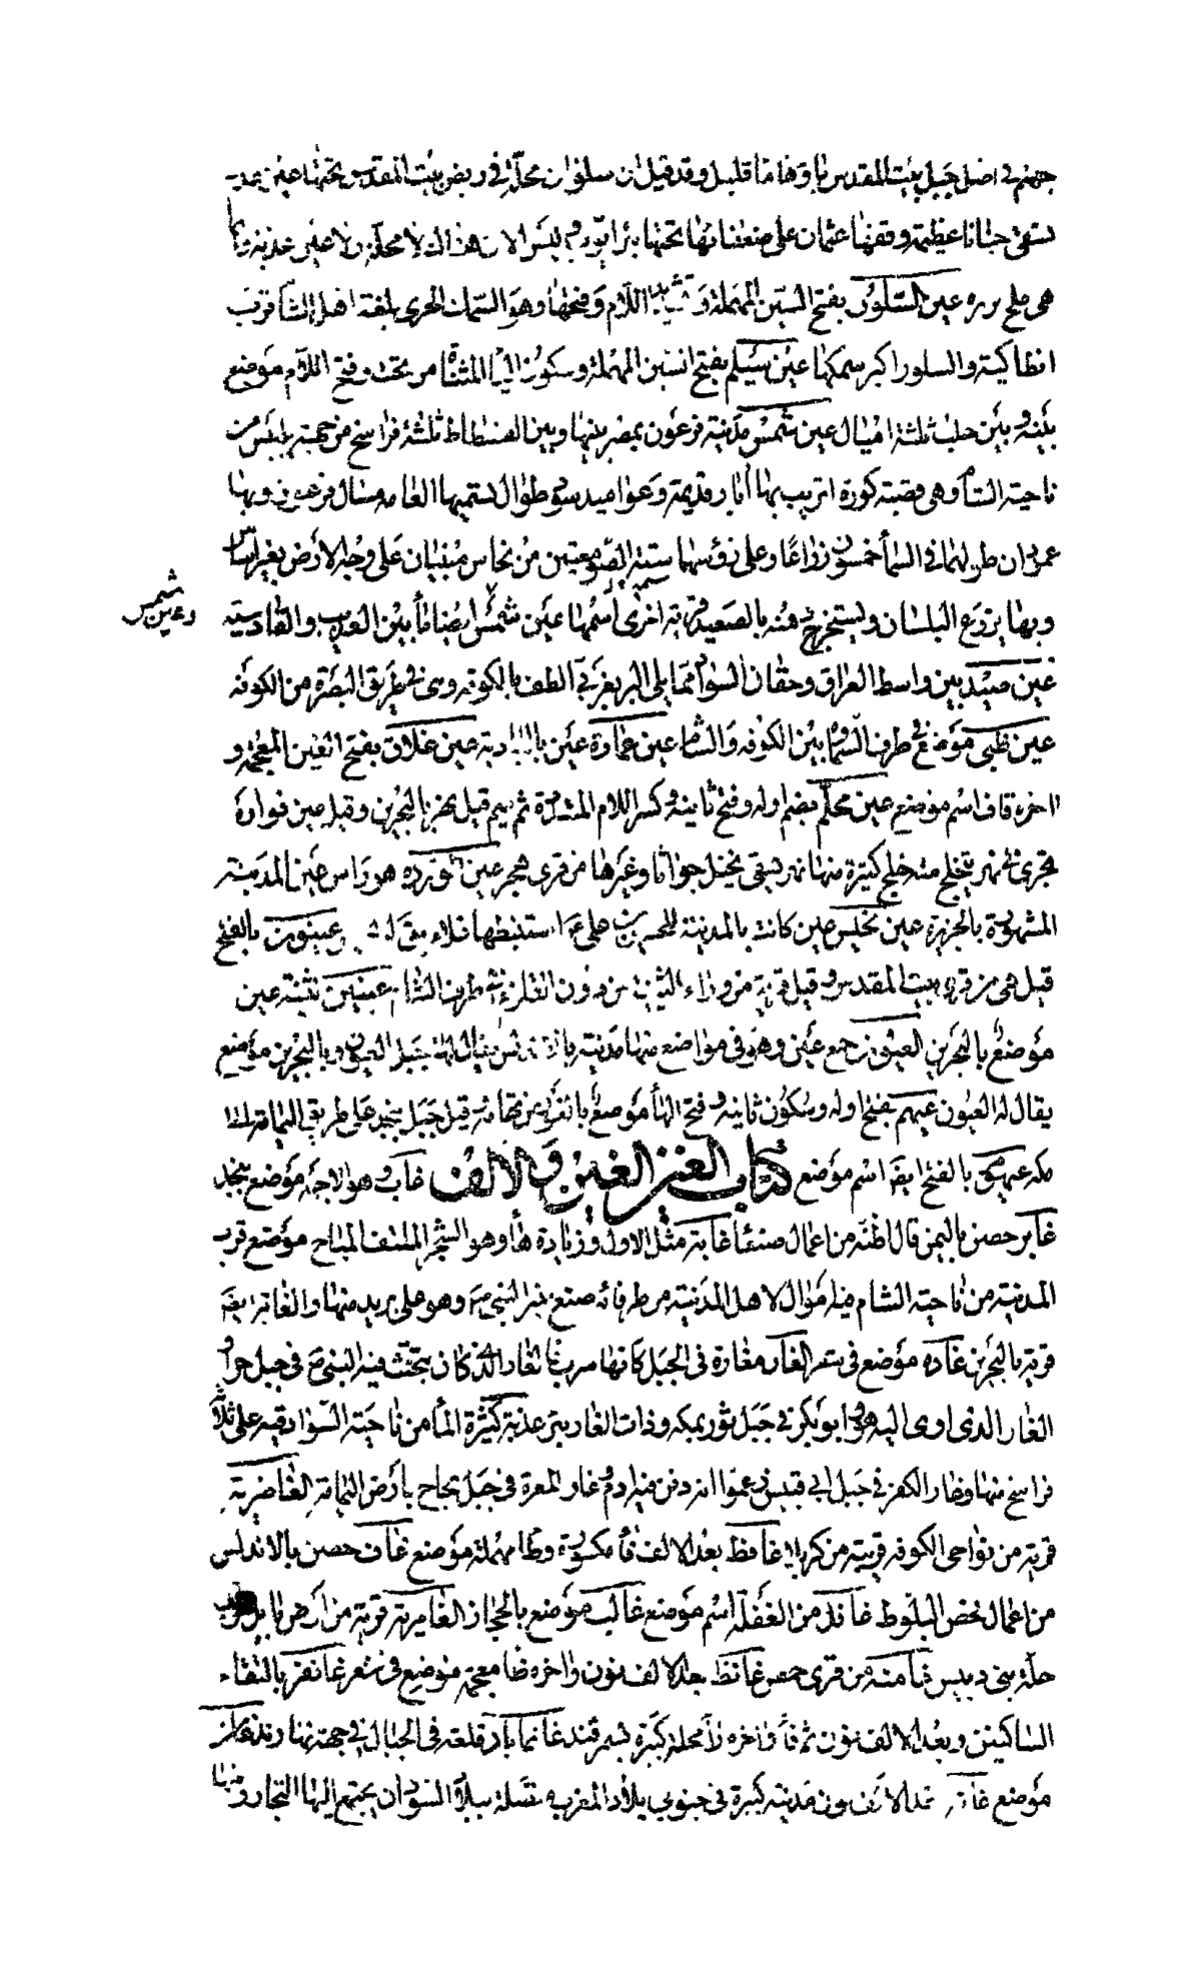 جهنم في اصل جبل بيت المقدس ماوها ما قليل وقد قيل ان سلوان محلة في ربض بيت المقدس تحتها عين
تسقى جنانا عظيمة وقفها عثمان على ضعفائها تحتها بئر ايوب وليس الان هناك لا محلة ولا عين عذبة وانما
هي ملح عين السلور بفتح السين المهملة وتشديد اللام وفتحها وهو السمك الجرى بلغة اهل الشام قرب
انطاكية والسلور اكبر سمكها عين سيلم بفتح السين المهملة وسكون اليا المثناة من تحت وفتح اللام موضع
بينه وبين حلب ثلثة اميال عين شمس مدينة فرعون بمصر بينها وبين الفسطاط ثلثة فراسخ من جهة بلبيس من
ناحية الشام وهي قصبة كورة اتريب بها اثار قديمة وعواميد سود طوال تسميها العامة مسال فرعون وبها
عمودان طولهما في السما خمسون ذراعا وعلى رؤسهما شبه الصومعتين من نحاس مبنيان على وجه الارض بغير اساس
وبها يزرع البلسان ويستخرج دهنه بالصعيد قرية اخرى اسمها عين شمس ايضا ما بين العذيب والقادسية
وعين شمس
عين صيد بين واسط العراق وخفان السواد مما يلي البر بغربي الطف بالكوفة وهي في طريق البصرة من الكوفة
عين ظبى موضع في طرف السماوة بين الكوفة والشام عين عمارة عين بالبادية عين غلاق بفتح الغين المعجمة و
اخره قاف اسم موضع عين محلم بضم اوله وفتح ثانيه وكسر اللام المشددة ثم ميم قيل نهر بالبحرين وقيل عين فوارة
تجرى في نهر يتخلج منه خلج كثيرة منها نهر يسقى نخيل جواثا وغيرها من قرى هجر عين الوردة هو راس عين المدينة
المشهورة بالجزيرة عين تخنس عين كانت بالمدينة للحسين بن علي استنبطها غلام يقال له عينون بالفتح
قيل هي من قرى بيت المقدس وقيل قرية من وراء البثنية من دون القلزم في طرف الشام عينين تثنية عين
موضع بالبحرين العيون جمع عين وهو في مواضع منها مدينة بالاندلس يقال لها جبل العيون وبالبحرين موضع
يقال له العيون عيهم بفتح اوله وسكون ثانيه وفتح الها موضع بالغور من تهامة وقيل جبل بنجد على طريق اليمامة الى
مكة عيهق بالفتح ايضا اسم موضع كتاب الغين الغين والالف غاب وهو الاجمة موضع بنجد
غابر حصن باليمن قال اظنه من اعمال صنعا غابة مثل الاول وزيادة ها وهو الشجر الملتف المباح موضع قرب
المدينة من ناحية الشام فيه اموال لاهل المدينة من طرفائه صنع منبر النبي ص وهو على بريد منها والغابة ايضا
قرية بالبحرين غادة موضع في شعر الغار مغارة في الجبل كانها سرب فالغار الذي كان يتحنث فيه النبي ص في جبل حرا و
الغار الذي اوى اليه هو وابو بكر في جبل ثور بمكة وذات الغار بير عذبة كثيرة الما من ناحية السوارقية على ثلاثة
فراسخ منها وغار الكنز في جبل ابي قبيس زعموا انه دفن فيه ادم وغار المعرة في جبل نجاح بارض اليمامة الغاضرية
قرية من نواحي الكوفة قريبة من كربلا غافط بعد الالف فا مكسورة وطا مهملة موضع غاف حصن بالاندلس
من اعمال فحص البلوط غافل من الغفلة اسم موضع غالب موضع بالحجاز الغامرية قرية من ارض بابل قرب
حلة بني مزيد غامنة من قرى حمص غانظ بعد الالف نون واخره ظا معجمة موضع في شعر غانفر بالتقاء
الساكنين وبعد الالف نون ثم فا واخره را محلة كبيرة بسمرقند غانماباد قلعة في الجبال في جهة نهاوند
موضع غانة بعد الالف نون مدينة كبيرة في جنوبي بلاد المغرب متصلة ببلاد السودان يجتمع اليها التجار ومنها